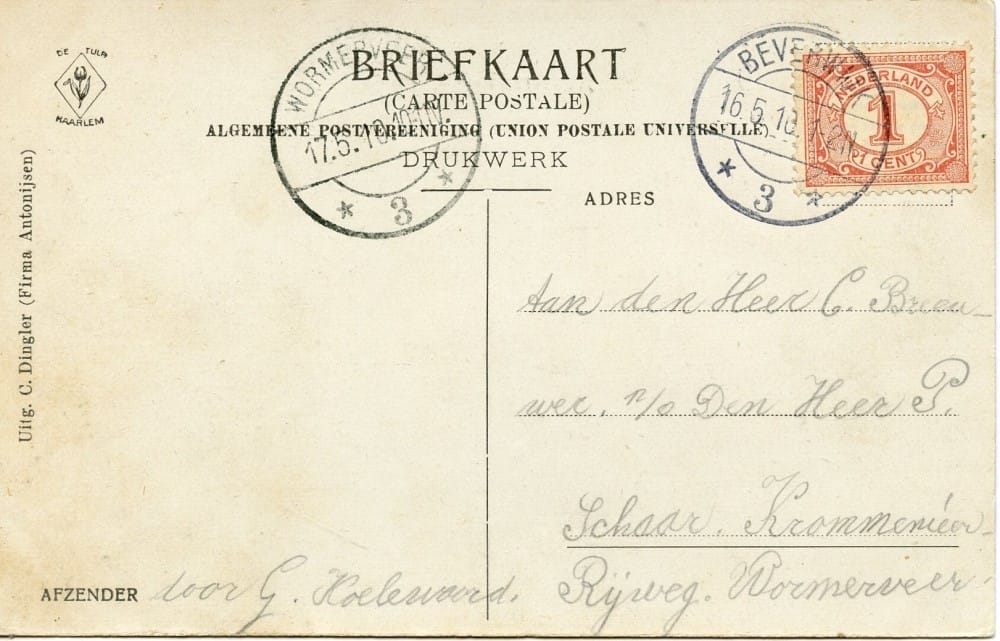 DE TULP
HAARLEM
BRIEFKAART
(CARTE POSTALE)
ALGEMEENE POSTVEREENIGING (UNION POSTALE UNIVERSELLE)
DRUKWERK
WORMERVEER
17.5.10.
3
BEVERWIJK
16.5.10. 1-2N
3
NEDERLAND
1
1 CENT
ADRES
Uitg. C. Dingler (Firma Antonijsen)
Aan den Heer C. Brou-
wer. p/o Den Heer P.
Schaar. Krommenieer-
Rijweg. Wormerveer
AFZENDER door G.